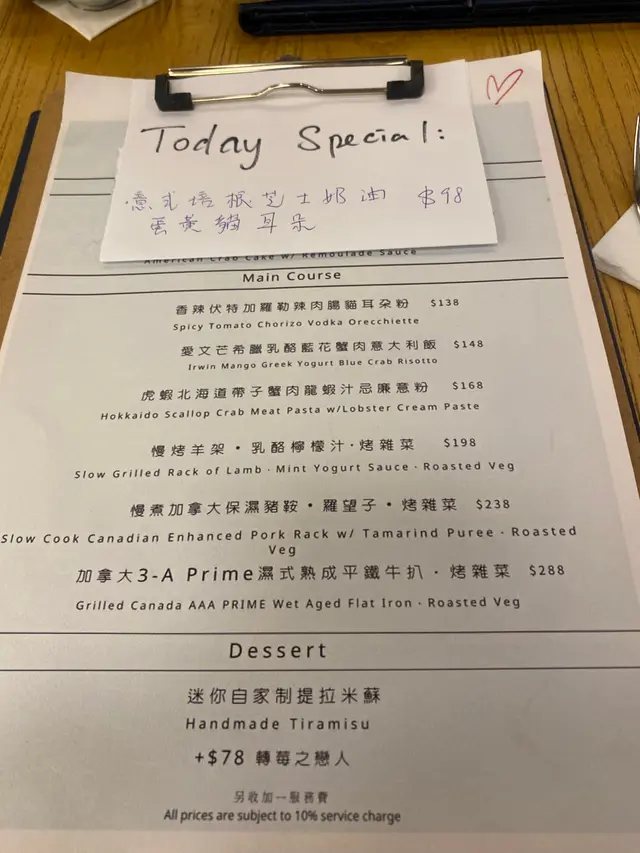 Today Special:
意式培根芝士奶油 $98
蛋黃貓耳朵
American Crab Cake w/ Remoulade Sauce
Main Course
香辣伏特加羅勒辣肉腸貓耳朶粉 $138
Spicy Tomato Chorizo Vodka Orecchiette
愛文芒希臘乳酪藍花蟹肉意大利飯 $148
Irwin Mango Greek Yogurt Blue Crab Risotto
虎蝦北海道帶子蟹肉龍蝦汁忌廉意粉 $168
Hokkaido Scallop Crab Meat Pasta w/Lobster Cream Paste
慢烤羊架・乳酪檸檬汁·烤雜菜 $198
Slow Grilled Rack of Lamb · Mint Yogurt Sauce · Roasted Veg
慢煮加拿大保濕豬鞍・羅望子・烤雜菜 $238
Slow Cook Canadian Enhanced Pork Rack w/ Tamarind Puree · Roasted
Veg
加拿大3-A Prime濕式熟成平鐵牛扒・烤雜菜 $288
Grilled Canada AAA PRIME Wet Aged Flat Iron · Roasted Veg
Dessert
迷你自家制提拉米蘇
Handmade Tiramisu
+$78 轉莓之戀人
另收加一服務費
All prices are subject to 10% service charge